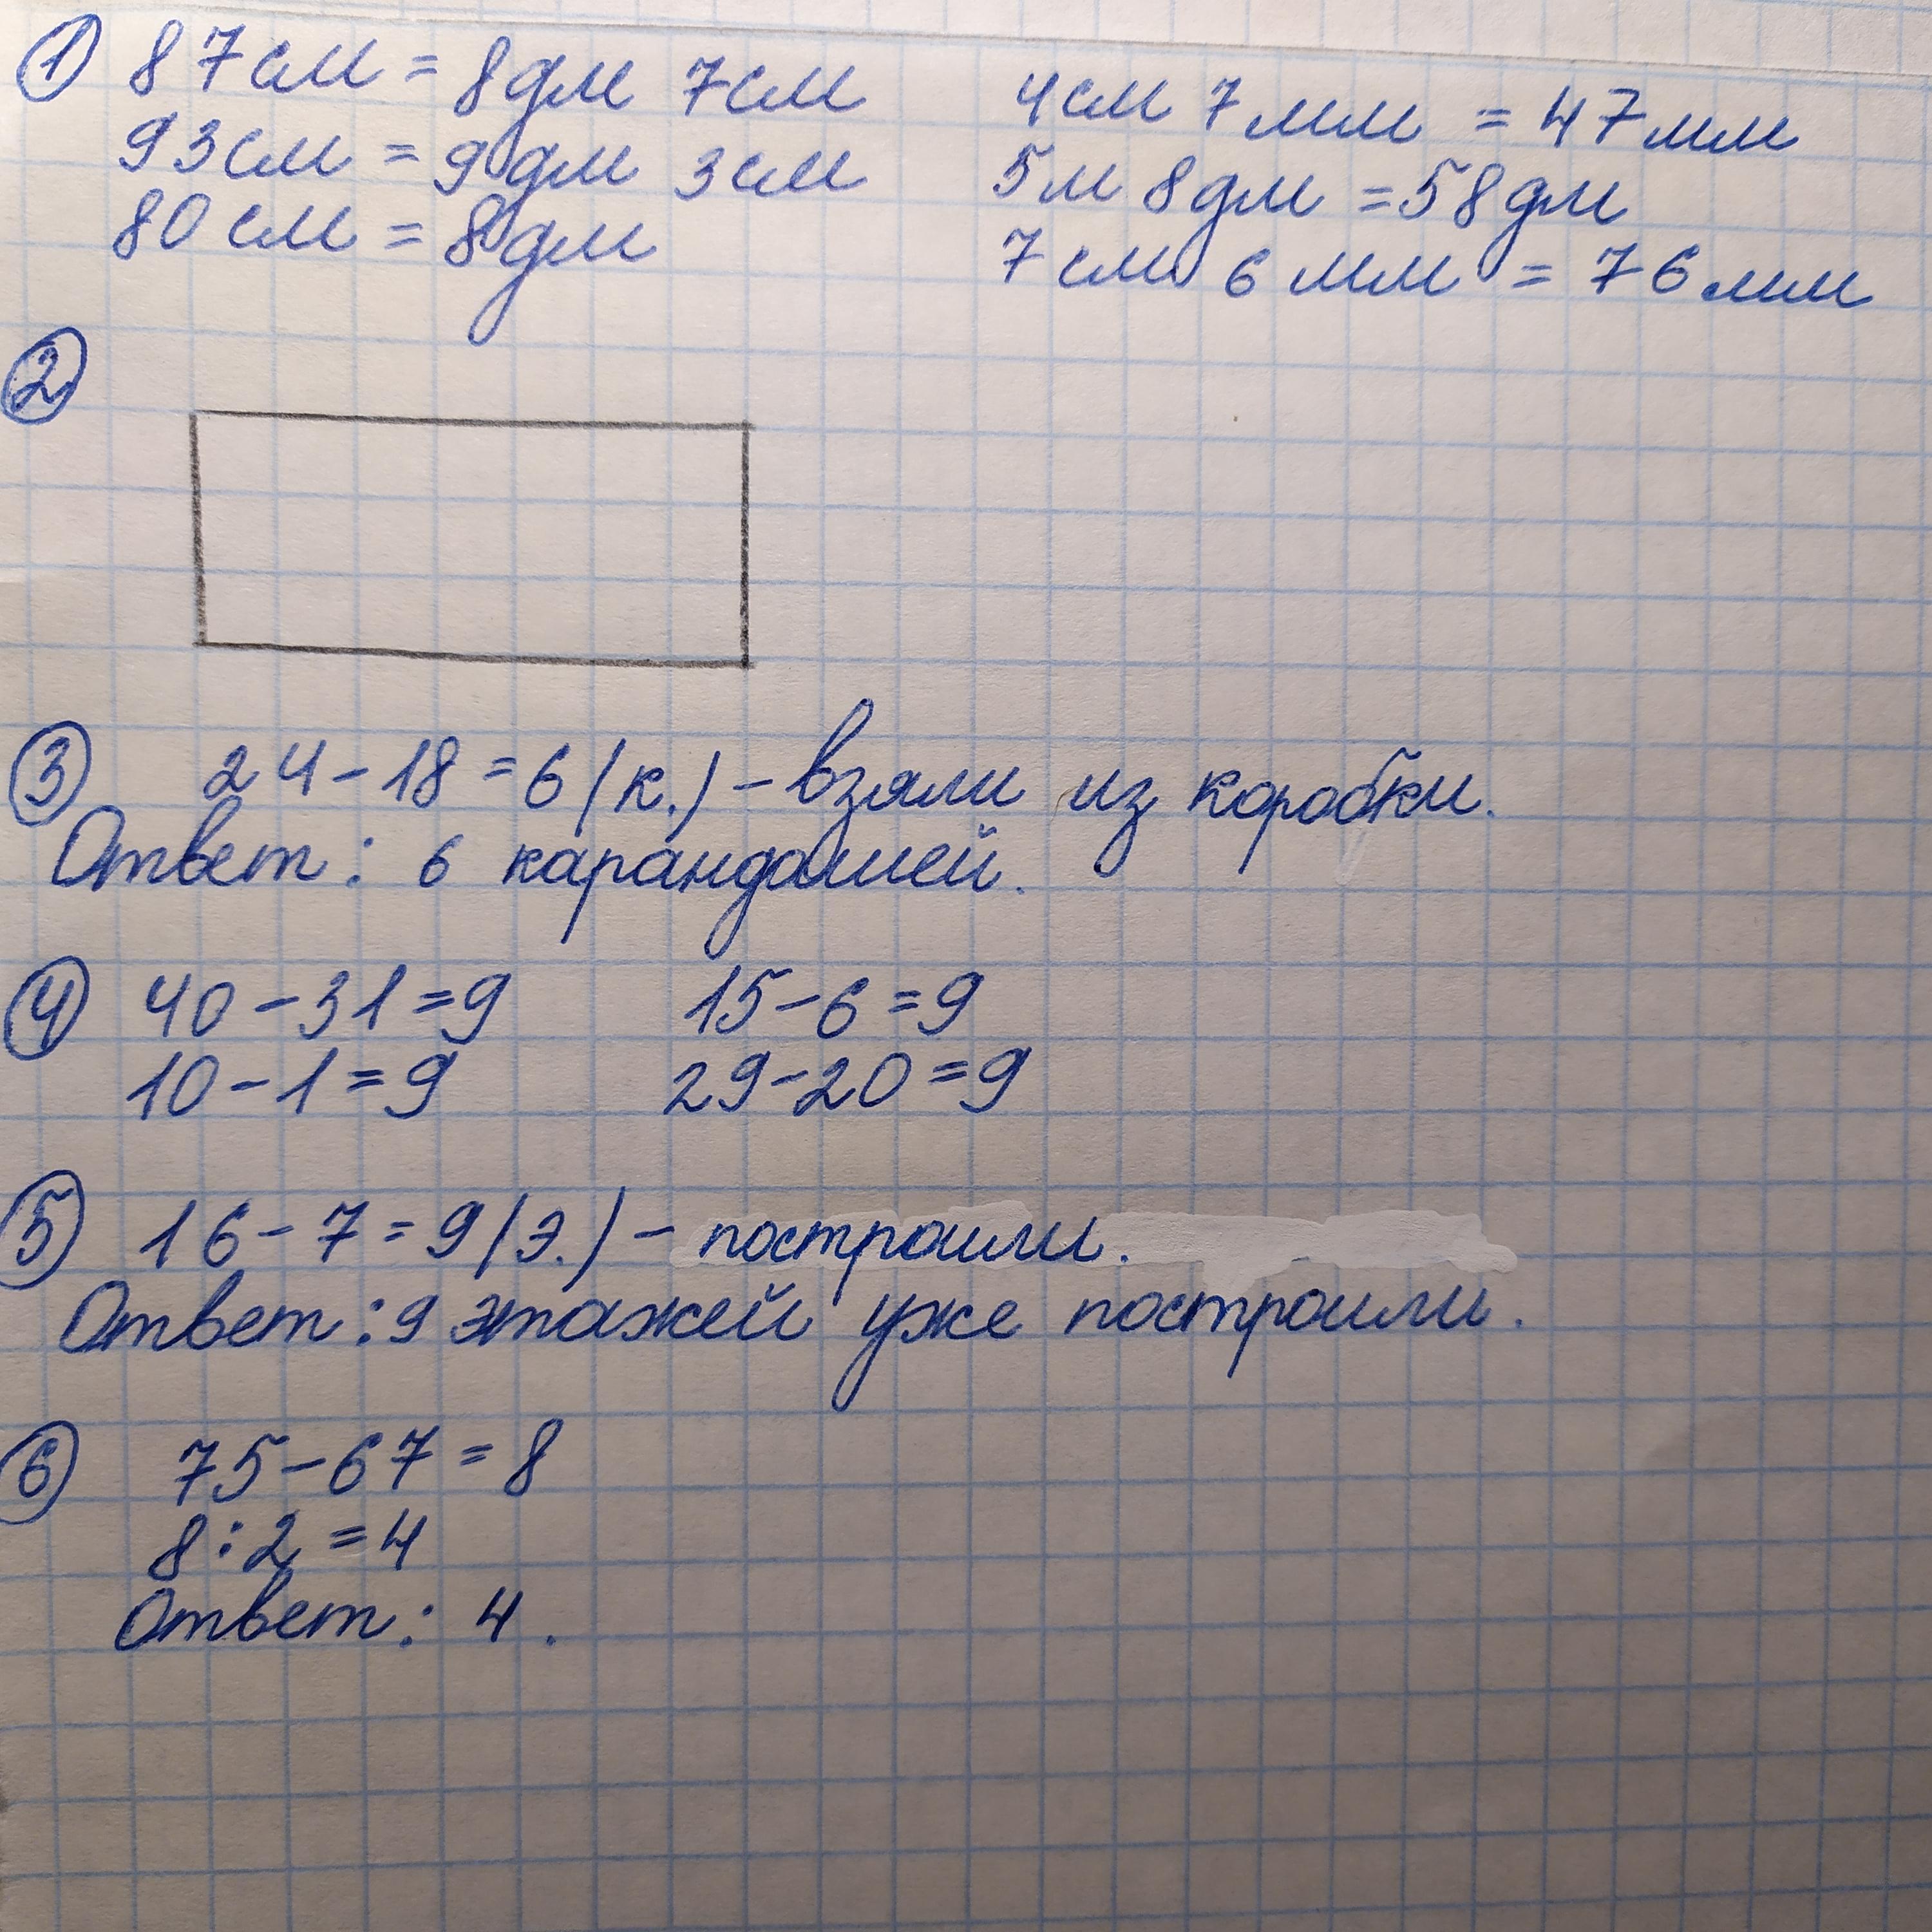 ① 87см = 8дм 7см 4см 7мм = 47мм
93см = 9дм 3см 5м 8дм = 58дм
80см = 8дм 7см 6мм = 76мм
②
③ 24 - 18 = 6 (к.) - взяли из коробки.
Ответ: 6 карандашей.
④ 40 - 31 = 9 15 - 6 = 9
10 - 1 = 9 29 - 20 = 9
⑤ 16 - 7 = 9 (э.) - построили.
Ответ: 9 этажей уже построили.
⑥ 75 - 67 = 8
8 : 2 = 4
Ответ: 4.